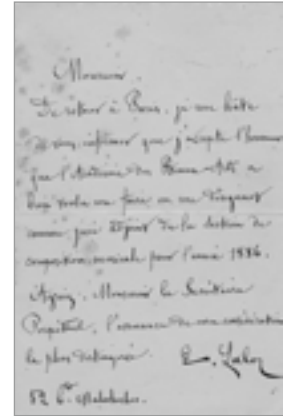 Monsieur,
De retour à Paris, je me hâte
de vous informer que j'accepte l'honneur
que l'Académie des Beaux-Arts a
bien voulu me faire en me désignant
comme juré adjoint de la section de
composition musicale pour l'année 1886.
Agréez, Monsieur le Secrétaire
Perpétuel, l'assurance de ma considération
la plus distinguée.
E. Lalo
Bd Malesherbes.